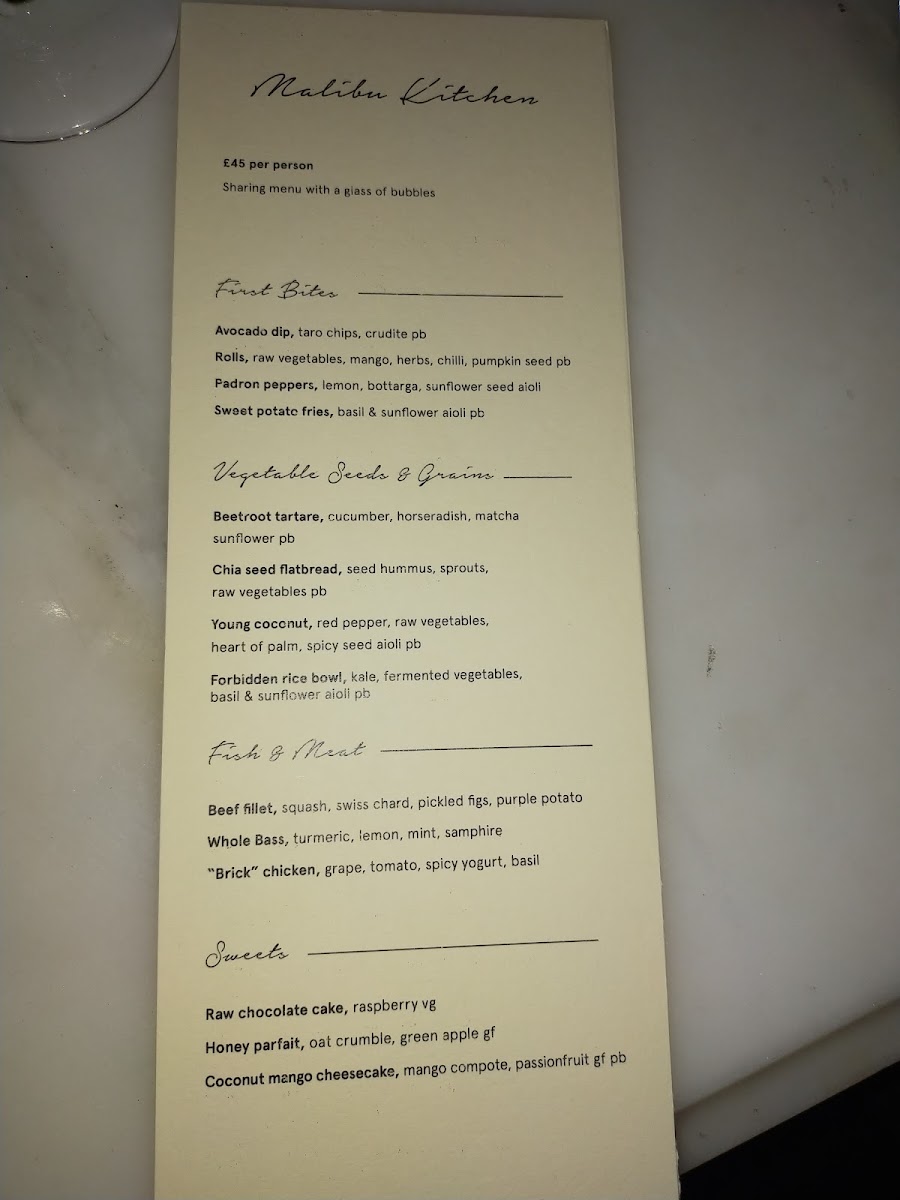 Malibu Kitchen
£45 per person
Sharing menu with a glass of bubbles
First Bites
Avocado dip, taro chips, crudite pb
Rolls, raw vegetables, mango, herbs, chilli, pumpkin seed pb
Padron peppers, lemon, bottarga, sunflower seed aioli
Sweet potato fries, basil & sunflower aioli pb
Vegetable Seeds & Grains
Beetroot tartare, cucumber, horseradish, matcha
sunflower pb
Chia seed flatbread, seed hummus, sprouts,
raw vegetables pb
Young coconut, red pepper, raw vegetables,
heart of palm, spicy seed aioli pb
Forbidden rice bowl, kale, fermented vegetables,
basil & sunflower aioli pb
Fish & Meat
Beef fillet, squash, swiss chard, pickled figs, purple potato
Whole Bass, turmeric, lemon, mint, samphire
“Brick” chicken, grape, tomato, spicy yogurt, basil
Sweets
Raw chocolate cake, raspberry vg
Honey parfait, oat crumble, green apple gf
Coconut mango cheesecake, mango compote, passionfruit gf pb